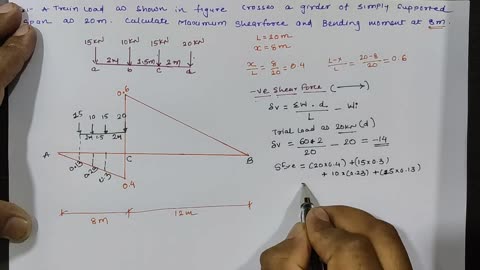 A Train Load as shown in figure crosses a girder of simply supported
span as 20m. Calculate Maximum Shearforce and Bending moment at 8m.
15KN 10KN 15KN 20KN
2M 1.5M 2M
a b c d
L = 20m
x = 8m
x/L = 8/20 = 0.4
L-x/L = 20-8/20 = 0.6
-ve Shear Force (⟶)
δv = ΣW.d/L - Wi
Total Load as 20KN (d)
δv = 60*2/20 - 20 = -14
SFve = (20x0.4) + (15x0.3)
+ 10x(0.23) + (15x0.13)
0.6
15 10 15 20
2m 1.5 2m
A C B
0.13 0.23 0.3
0.4
8m 12m